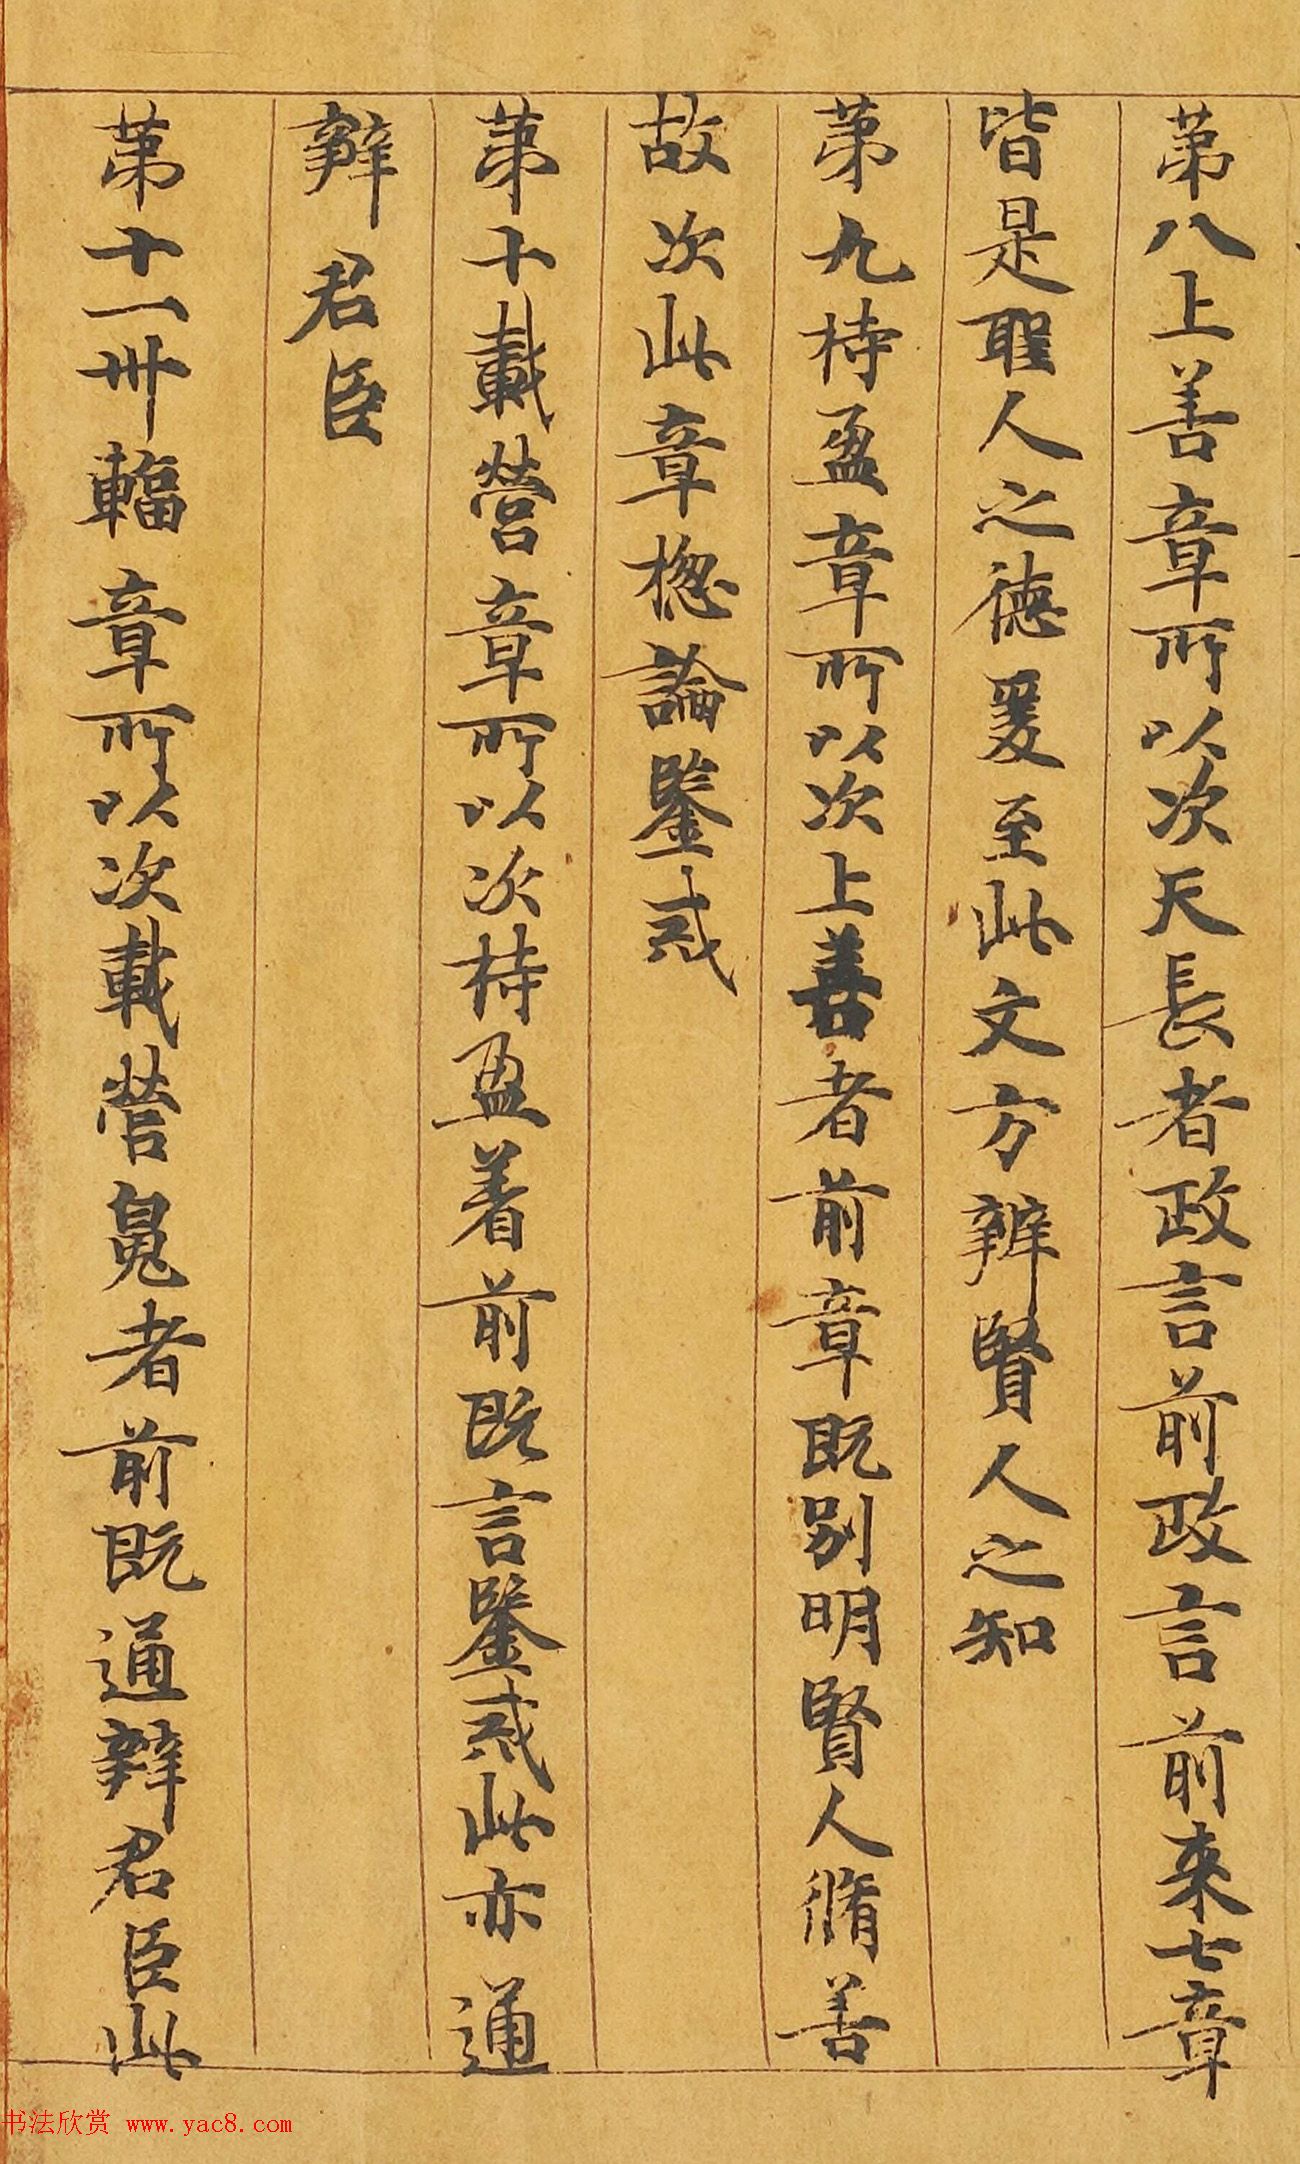 第八上善章所以次天長者政言前政言前來七章
皆是聖人之德爰至此文方辨賢人之知
第九持盈章所以次上善者前章既別明賢人脩善
故次此章揔論鑒戒
第十載營章所以次持盈着前既言鑒戒此亦通
辯君臣
第十一卅輻章所以次載營䰟者前既通辯君臣此
书法欣赏 www.yac8.com